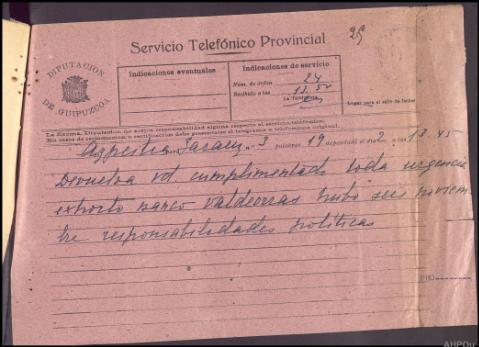 25
Servicio Telefónico Provincial
DIPUTACION
DE GUIPUZCOA
Indicaciones eventuales
Indicaciones de servicio
Núm. de orden 24
Recibido a las 13.50
La Telefonista
Lugar para el sello de fechas
La Excma. Diputación no acepta responsabilidad alguna respecto al servicio telefónico.
En caso de reclamación o rectificación debe presentarse el telegrama o telefonema original.
Azpeitia Zarauz 3 palabras 19 depositado el día 2 a las 13.45
Devuelva vd. cumplimentado toda urgencia
exhorto Barco Valdeorras seis noviem
bre responsabilidades politicas
AHPOu